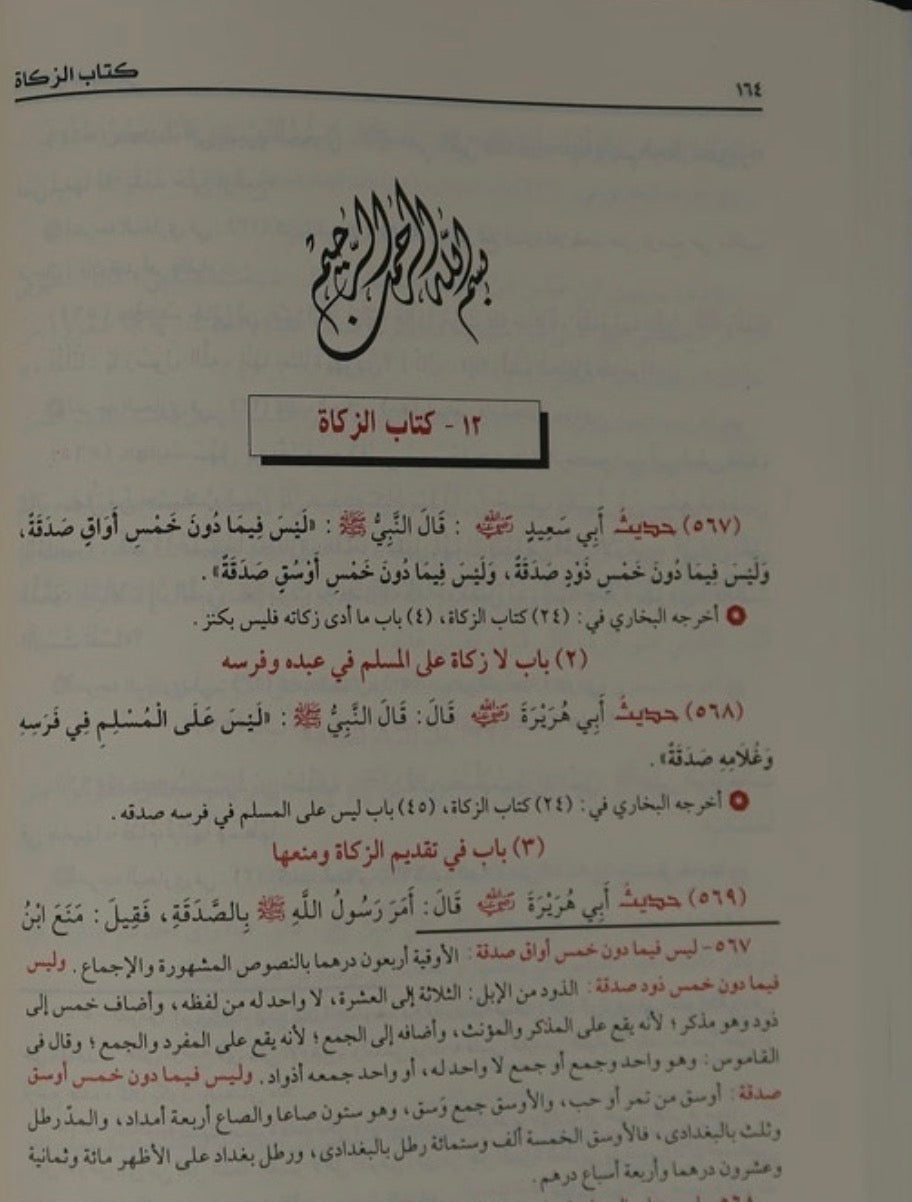 ١٦٤ كتاب الزكاة
بسم الله الرحمن الرحيم
١٢ - كتاب الزكاة
(٥٦٧) حديثُ أَبِي سَعِيدٍ رضي الله عنه : قَالَ النَّبِيُّ ﷺ : «لَيْسَ فِيمَا دُونَ خَمْسِ أَوَاقٍ صَدَقَةٌ،
وَلَيْسَ فِيمَا دُونَ خَمْسِ ذَوْدٍ صَدَقَةٌ، وَلَيْسَ فِيمَا دُونَ خَمْسِ أَوْسُقٍ صَدَقَةٌ» .
أخرجه البخاري في: (٢٤) كتاب الزكاة، (٤) باب ما أدى زكاته فليس بكنز .
(٢) باب لا زكاة على المسلم في عبده وفرسه
(٥٦٨) حديثُ أَبِي هُرَيْرَةَ رضي الله عنه قَالَ: قَالَ النَّبِيُّ ﷺ : «لَيْسَ عَلَى الْمُسْلِمِ فِي فَرَسِهِ
وَغُلَامِهِ صَدَقَةٌ» .
أخرجه البخاري في: (٢٤) كتاب الزكاة، (٤٥) باب ليس على المسلم في فرسه صدقه .
(٣) باب في تقديم الزكاة ومنعها
(٥٦٩) حديثُ أَبِي هُرَيْرَةَ رضي الله عنه قَالَ: أَمَرَ رَسُولُ اللَّهِ ﷺ بِالصَّدَقَةِ، فَقِيلَ: مَنَعَ ابْنُ
٥٦٧- ليس فيما دون خمس أواق صدقة : الأوقية أربعون درهما بالنصوص المشهورة والإجماع . وليس
فيما دون خمس ذود صدقة : الذود من الإبل : الثلاثة إلى العشرة، لا واحد له من لفظه، وأضاف خمس إلى
ذود وهو مذكر ؛ لأنه يقع على المذكر والمؤنث، وأضافه إلى الجمع ؛ لأنه يقع على المفرد والجمع ؛ وقال فى
القاموس : وهو واحد وجمع أو جمع لا واحد له، أو واحد جمعه أذواد . وليس فيما دون خمس أوسق
صدقة : أوسق من تمر أو حب، والأوسق جمع وَسق، وهو ستون صاعا والصاع أربعة أمداد، والمدّ رطل
وثلث بالبغدادى، فالأوسق الخمسة ألف وستمائة رطل بالبغدادى، ورطل بغداد على الأظهر مائة وثمانية
وعشرون درهما وأربعة أسباع درهم .